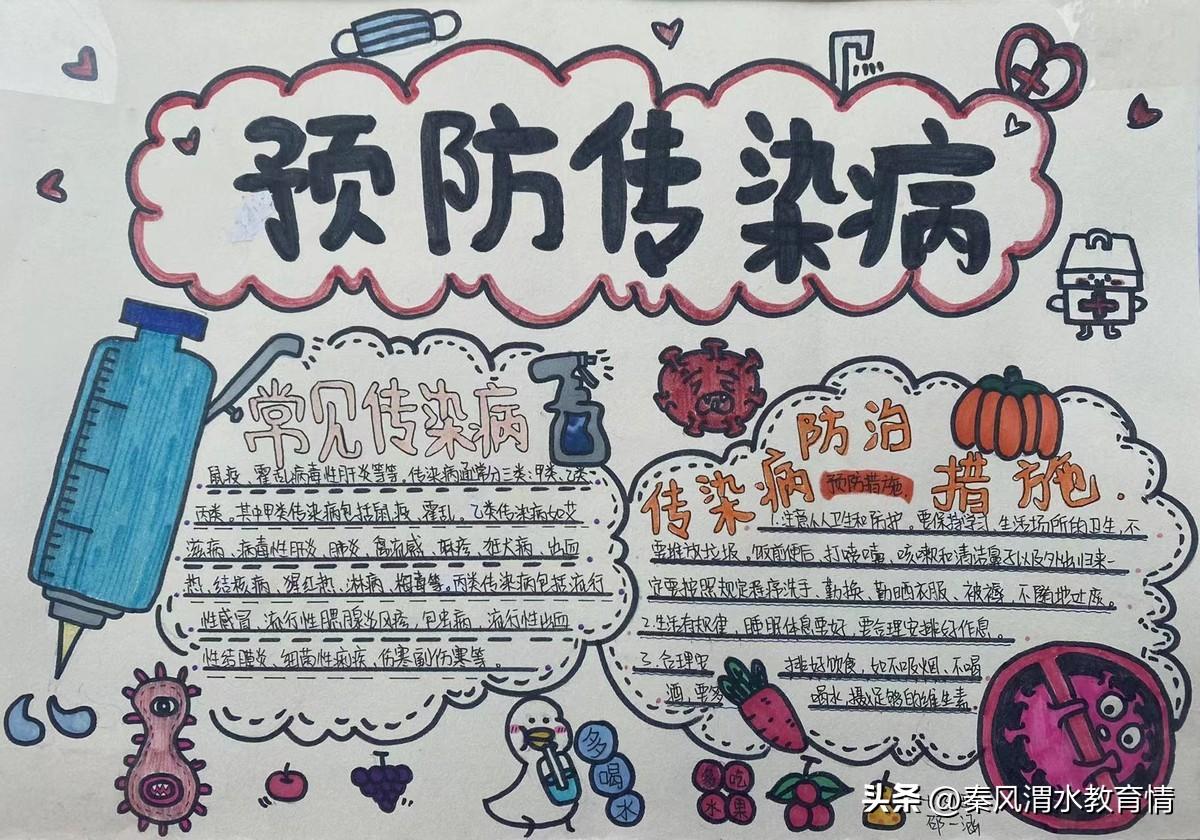 预防传染病
常见传染病
鼠疫、霍乱病毒性肝炎等等。传染病通常分三类:甲类、乙类
丙类。其中甲类传染病包括鼠疫、霍乱。乙类传染病比如艾
滋病、病毒性肝炎、肺炎、禽流感、麻疹、狂犬病、出血
热、结核病、猩红热、淋病、梅毒等。丙类传染病包括流行
性感冒、流行性腮腺炎风疹、包虫病、流行性出血
性结膜炎、细菌性痢疾、伤寒副伤寒等。
防治
传染病 预防措施. 措施.
1.注意个人卫生和防护,要保持学习、生活场所的卫生,不
要堆放垃圾。饭前便后、打喷嚏、咳嗽和清洁鼻子以及外出归来一
定要按照规定程序洗手,勤换、勤晒衣服、被褥,不随地吐痰。
2.生活有规律,睡眠休息要好,要合理安排好作息。
3.合理安 排好饮食,如不吸烟、不喝
酒,要多 喝水,摄足够的维生素
多喝水
多吃水果
邵一涵
头条 @秦风渭水教育情